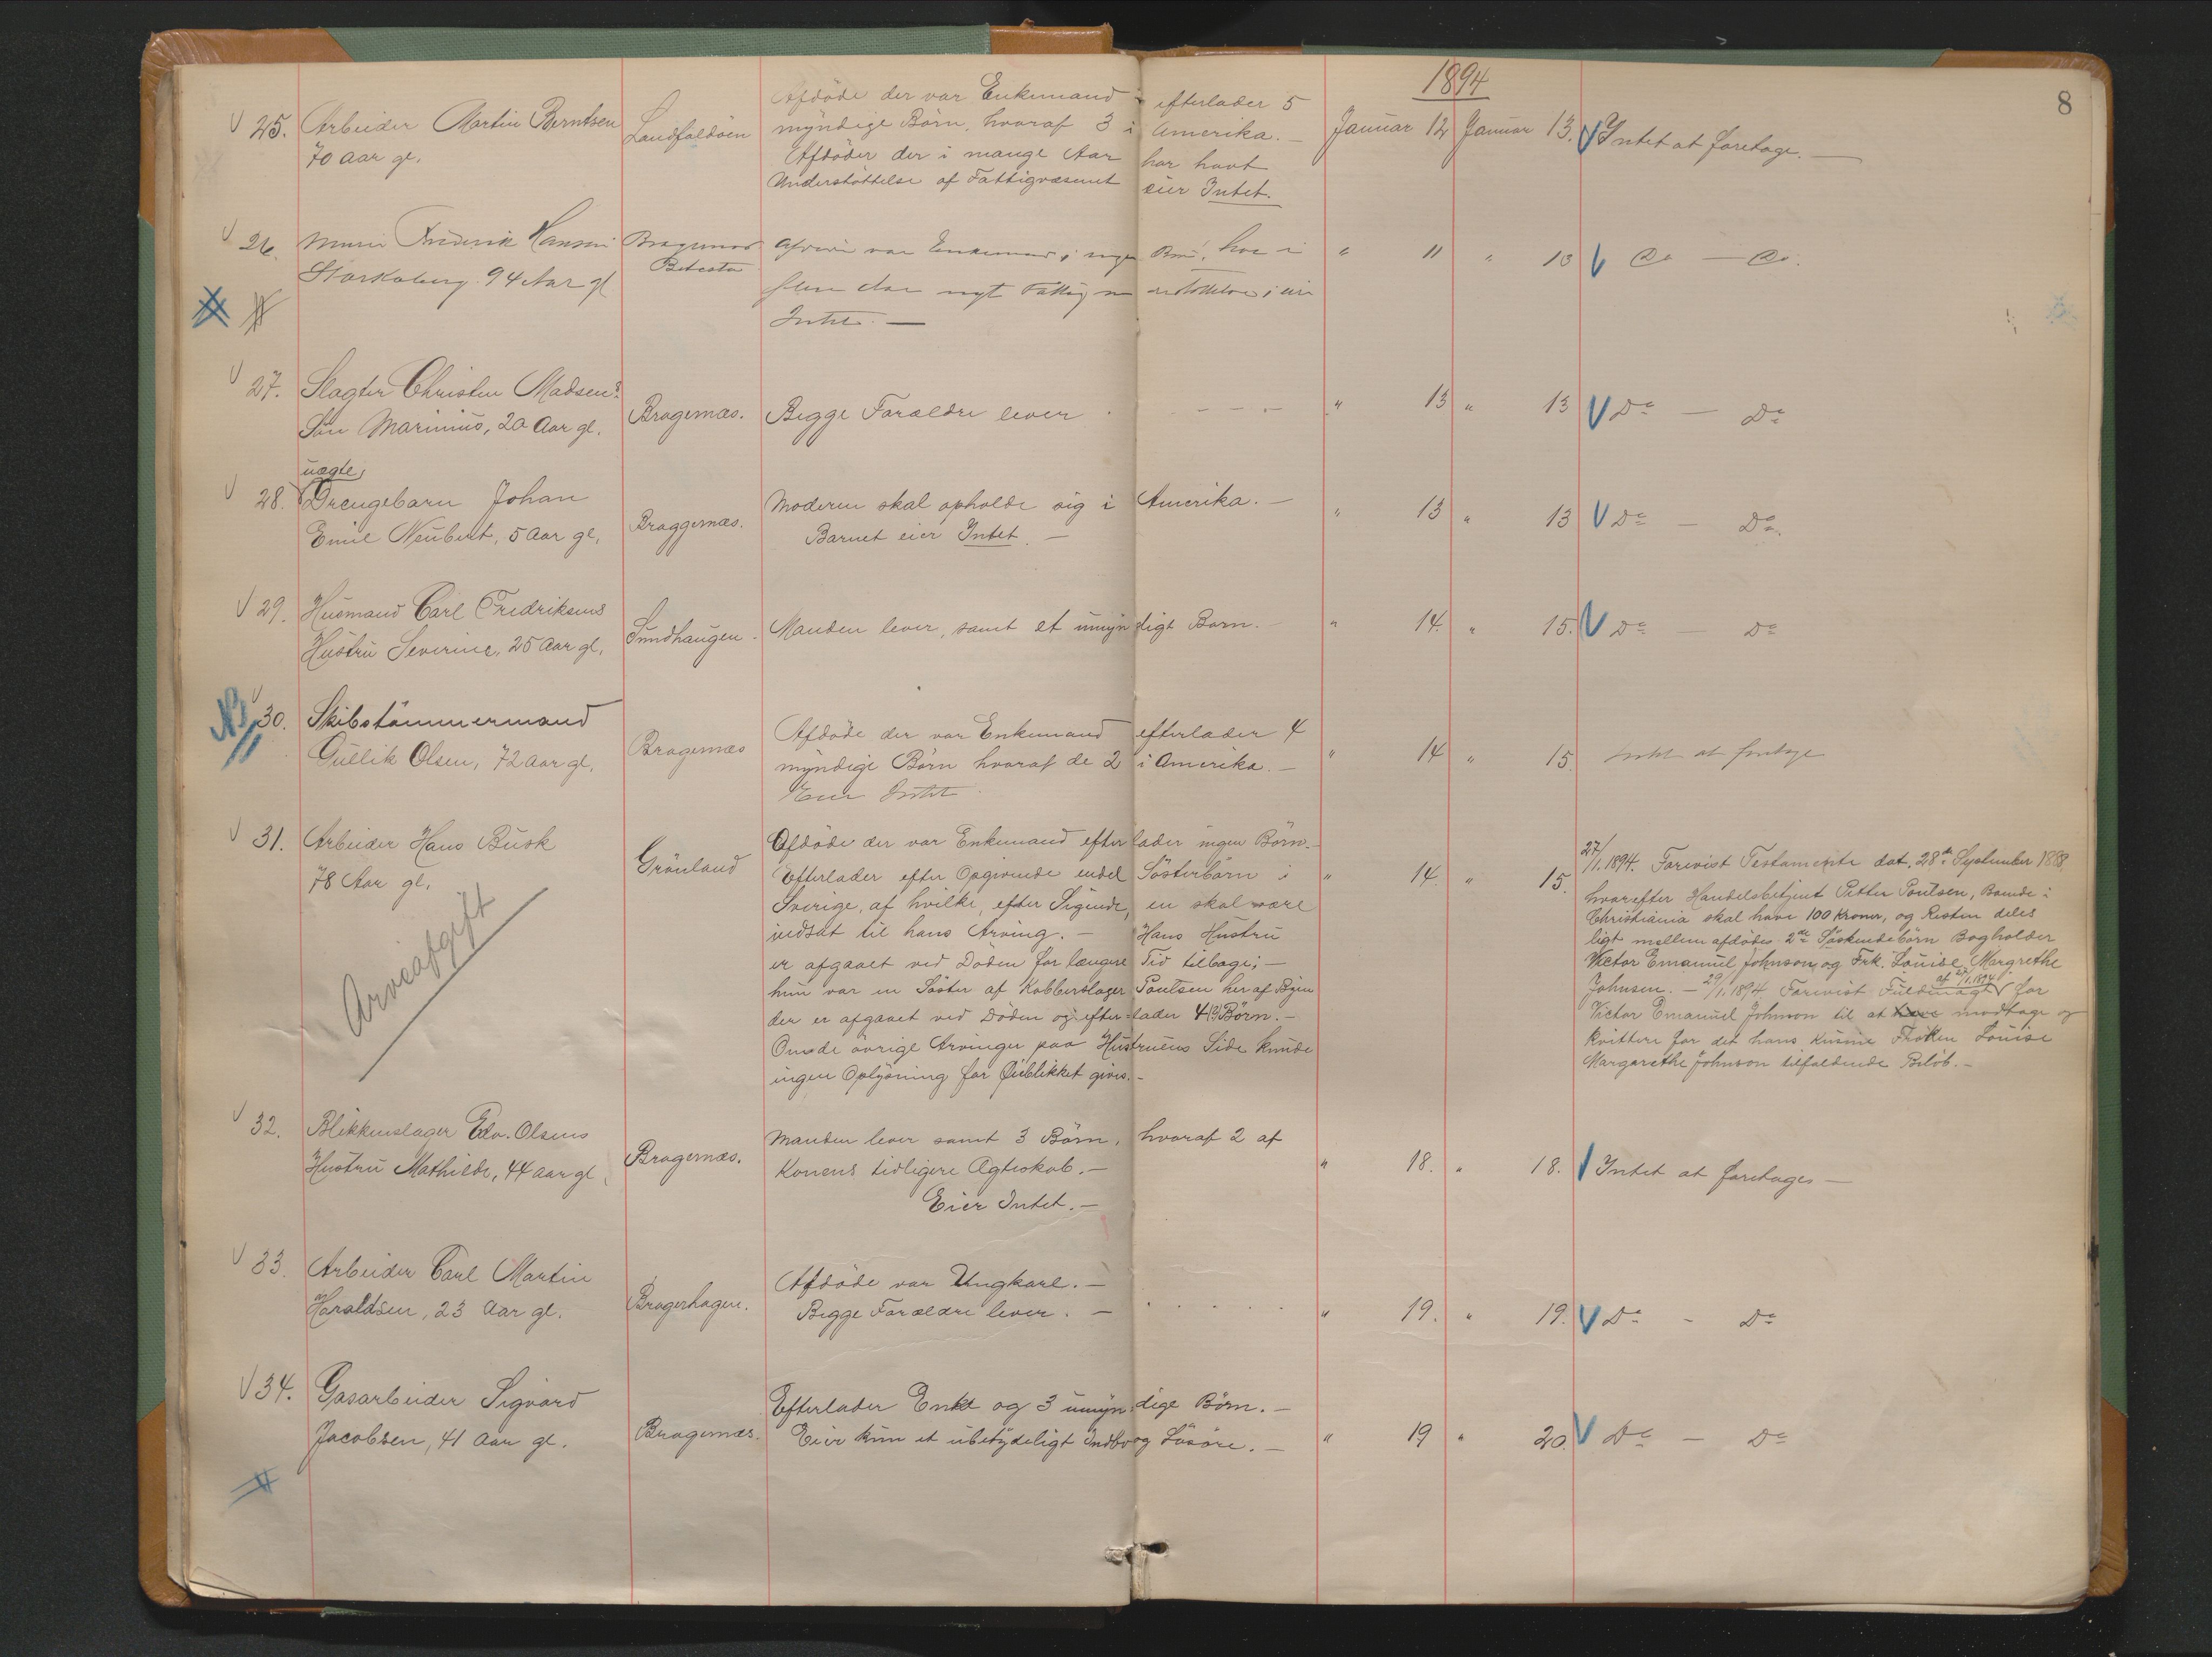 1894
8
25. Arbeider Martin Berntsen
70 Aar gl.
Landfaldöen
Afdöde der var Enkemand - efterlader 5
myndige Börn, hvoraf 3 i Amerika. -
Afdöder der i mange Aar har havt
Understöttelse af Fattigvæsenet eier Intet.
Januar 12 Januar 13. Intet at foretage. -
26. Frederik Hansen
Storkoberg 94 Aar gl
Bragernæs
var Enkemand, ingen Börn, har i
flere Aar nyt
Intet. -
" 11 " 13 Do - Do.
27. Slagter Christen Madsens
Sön Marinius, 20 Aar gl.
Bragernæs.
Begge Forældre lever
" 13 " 13 Do - Do
uægte
28. Drengebarn Johan
Emil Neubert, 5 Aar gl.
Braggernæs.
Moderen skal opholde sig i Amerika. -
Barnet eier Intet. -
" 13 " 13 Do - Do.
29. Husmand Carl Fredriksens
Hustru Severine, 25 Aar gl.
Sundhaugen.
Manden lever, samt et umyndigt Barn. -
" 14. " 15. Do - Do
NB
30. Skibstömmermand
Gullik Olsen, 72 Aar gl.
Bragernæs
Afdöde der var Enkemand efterlader 4
myndige Börn hvoraf de 2 i Amerika. -
Eier Intet
" 14 " 15. Intet at foretage
31. Arbeider Hans Busk
78 Aar gl.
Arveafgift
Grönland
Afdöde der var Enkemand efterlader ingen Börn. -
Efterlader efter Opgivende endel Sösterbörn i
Sverige, af hvilke, efter Sigende, en skal være
indsat til hans Arving. - Hans Hustru
er afgaaet ved Döden for længere Tid tilbage; -
hun var en Söster af Kobberslager Poulsen her af Byen
der er afgaaet ved Döden og efter=lader 4 (3) Börn. -
Om de övrige Arvinger paa Hustruens Side kunde
ingen Oplysning for Øieblikket gives. -
" 14. " 15.
27/1.1894. Forevist Testamente dat. 28de September 1888,
hvorefter Handelsbetjent Petter Poulsen, Boende i
Christiania skal have 100 Kroner, og Resten deles
ligt mellem afdödes 2de Söskendebörn Bogholder
Victor Emanuel Johnson og Frk. Louise Margrethe
Johnsen. - 29/1.1894 Forevist Fuldmagt af 27/1.1894 for
Victor Emanuel Johnson til at modtage og
kvittere for det hans Kusine Fröken Louise
Margarethe Johnson tilfaldende Belöb. -
32. Blikkenslager Edv. Olsens
Hustru Mathilde, 44 Aar gl.
Bragernæs.
Manden lever samt 3 Börn, hvoraf 2 af
Konens tidligere Ægteskab. -
Eier Intet. -
" 18. " 18. Intet at foretages -
33. Arbeider Carl Martin
Haraldsen, 23 Aar gl.
Bragerhagen.
Afdöde var Ungkarl. -
Begge Forældre lever. -
" 19. " 19. Do - Do
34. Gasarbeider Sigvard
Jacobsen, 41 Aar gl.
Bragernæs.
Efterlader Enke og 3 umyndige Börn. -
Eier kun et ubetydeligt Indbo og Lösöre. -
" 19 " 20. Do - Do